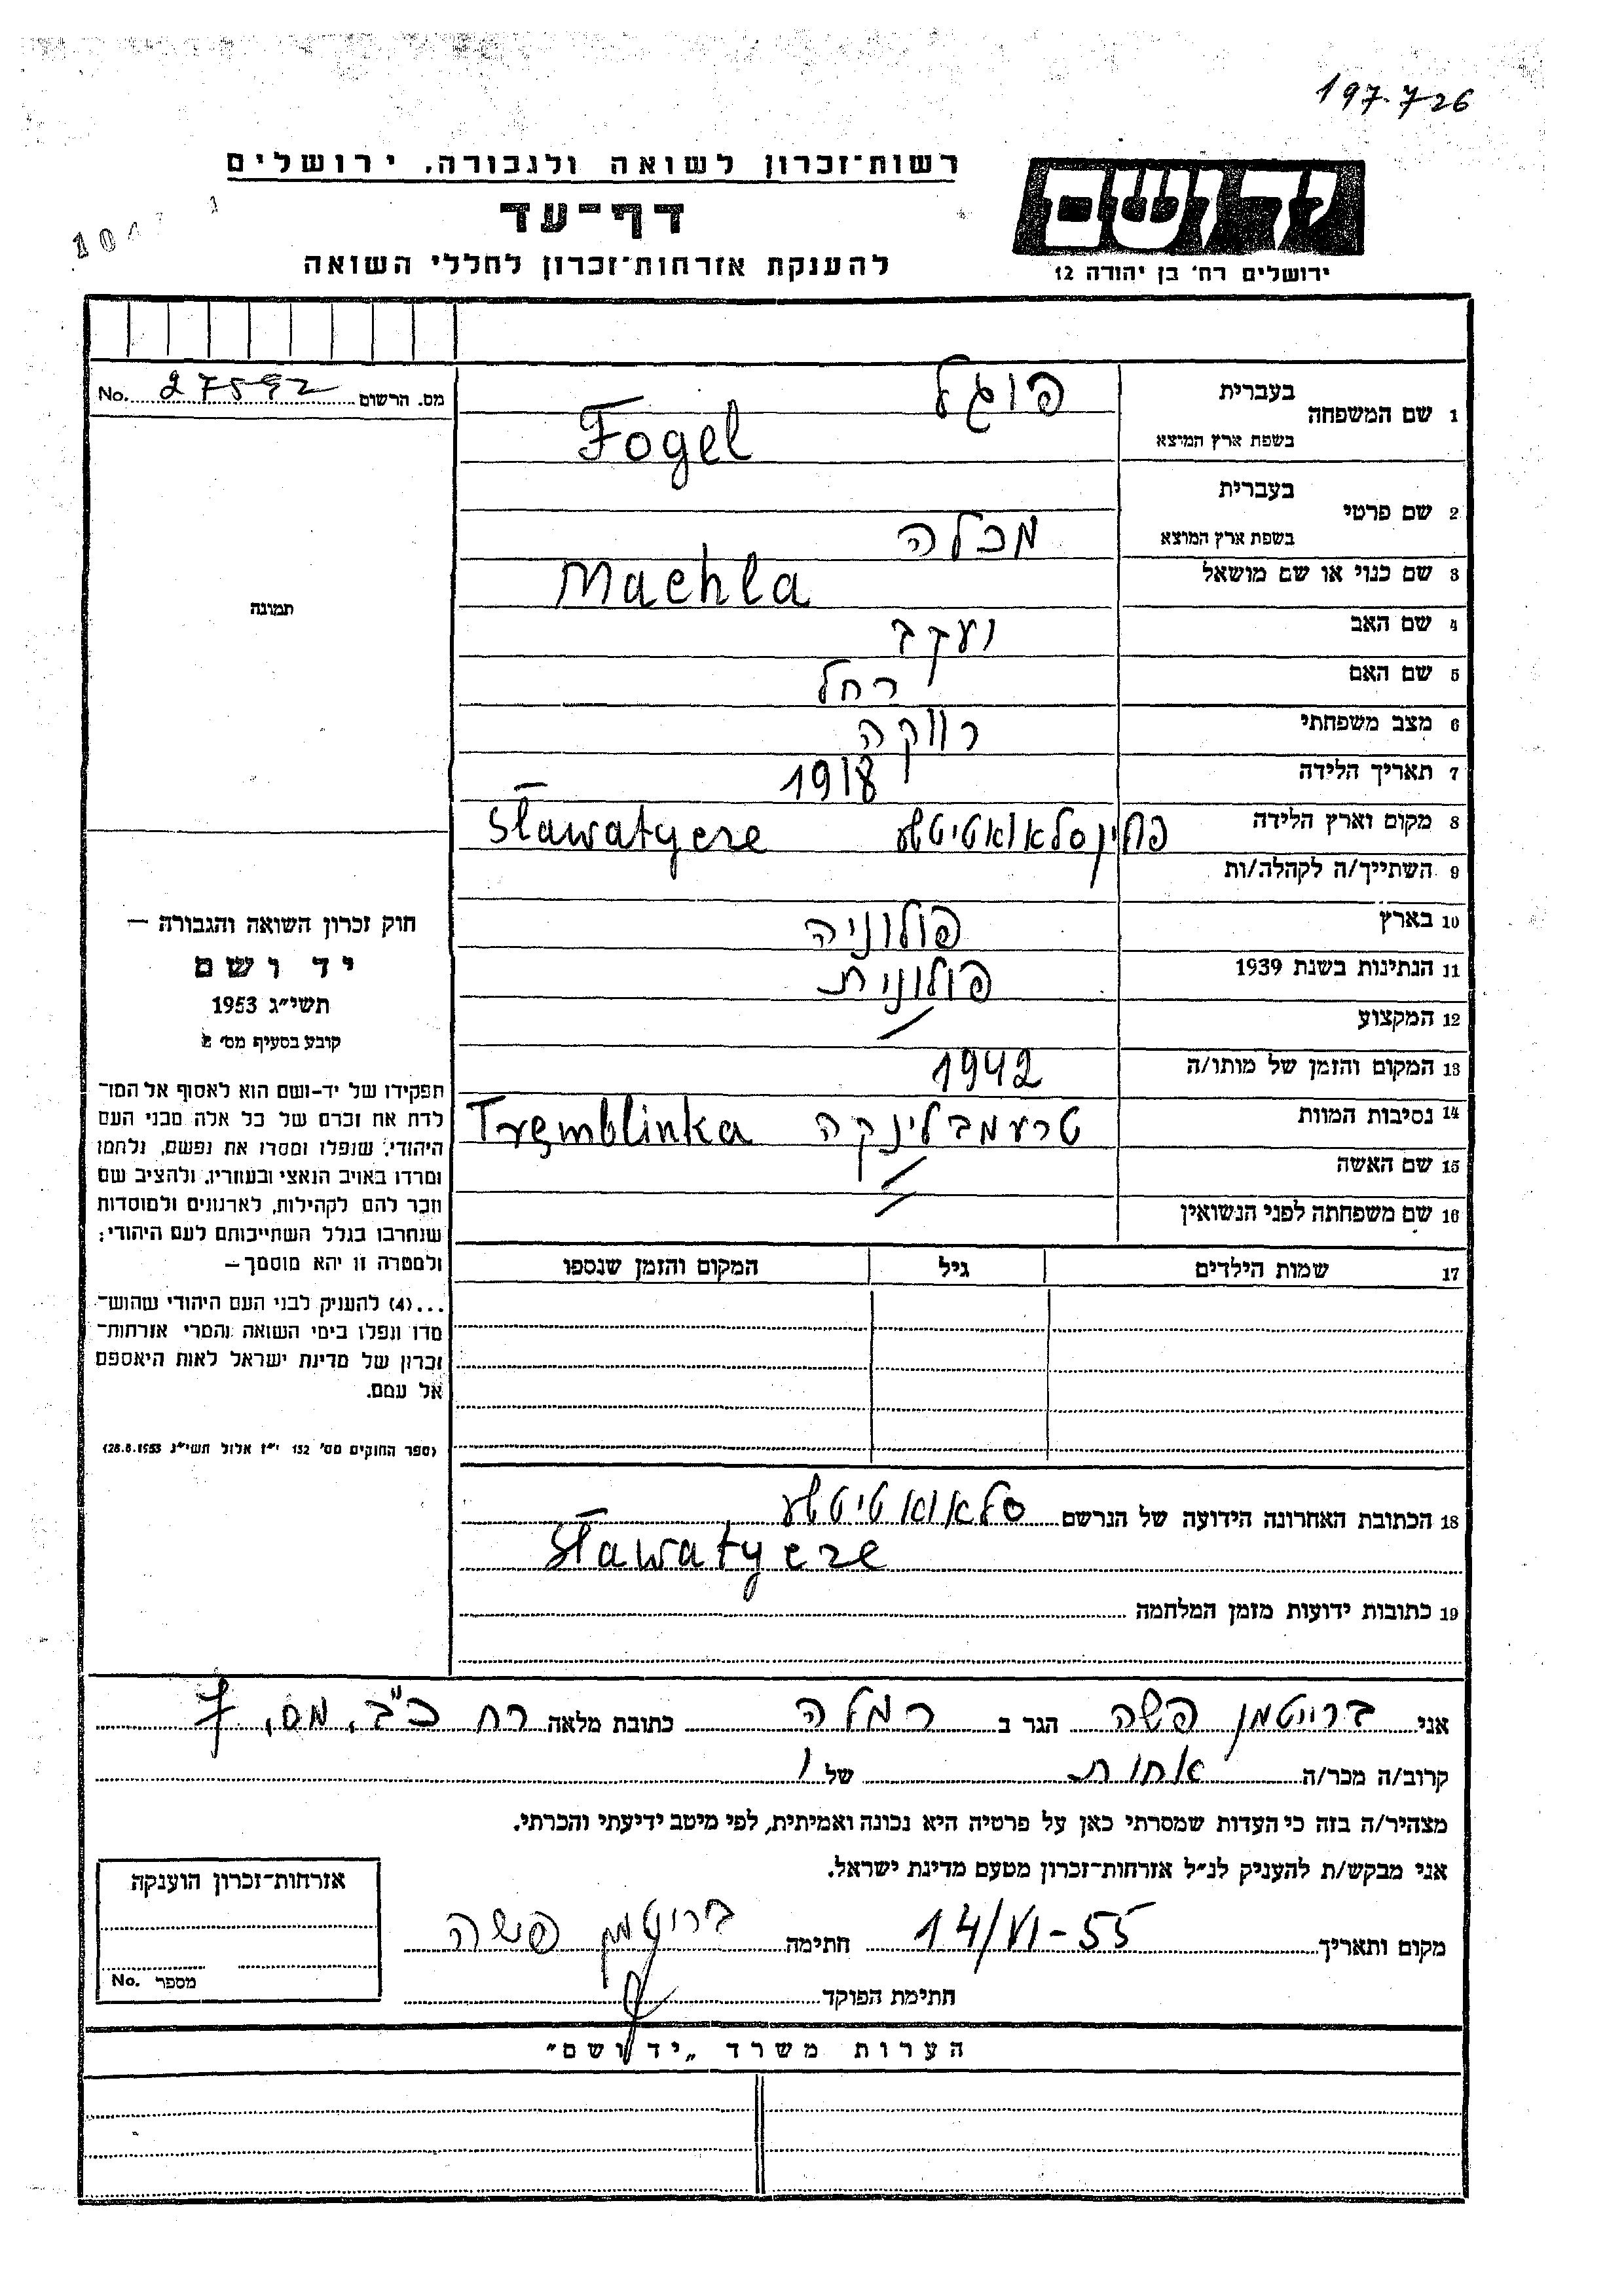 197.726
רשות־זכרון לשואה ולגבורה, ירושלים
דף־עד
להענקת אזרחות־זכרון לחללי השואה
יד ושם
ירושלים רח' בן יהודה 12
No. 27592 מס. הרשום
1 שם המשפחה
בעברית פוגל
בשפת ארץ המוצא Fogel
2 שם פרטי
בעברית
בשפת ארץ המוצא מכלה
3 שם כנוי או שם מושאל Machla
4 שם האב יעקב
5 שם האם רחל
6 מצב משפחתי רווקה
7 תאריך הלידה 1918
8 מקום וארץ הלידה סלאוואטיטשע Sławatycze
9 השתייך/ה לקהלה/ות
10 בארץ פולוניה
11 הנתינות בשנת 1939 פולונית
12 המקצוע /
13 המקום והזמן של מותו/ה 1942
14 נסיבות המוות טרעמבלינקה Tremblinka
15 שם האשה /
16 שם משפחתה לפני הנשואין /
17 שמות הילדים גיל המקום והזמן שנספו
תמונה
חוק זכרון השואה והגבורה —
יד ושם
תשי״ג 1953
קובע בסעיף מס' 2
תפקידו של יד-ושם הוא לאסוף אל המו־
לדת את זכרם של כל אלה מבני העם
היהודי, שנפלו ומסרו את נפשם, נלחמו
ומרדו באויב הנאצי ובעוזריו, ולהציב שם
וזכר להם לקהילות, לארגונים ולמוסדות
שנחרבו בגלל השתייכותם לעם היהודי;
ולמטרה זו יהא מוסמך —
...(4) להעניק לבני העם היהודי שהוש־
מדו ונפלו בימי השואה והמרי אזרחות־
זכרון של מדינת ישראל לאות היאספם
אל עמם.
(ספר החוקים מס' 132 י״ז אלול תשי״ג 28.8.1953)
18 הכתובת האחרונה הידועה של הנרשם סלאוואטיטשע
Sławatycze
19 כתובות ידועות מזמן המלחמה
אני ברייטמן פשה הגר ב רמלה כתובת מלאה רח כ״ב, מס, 7
קרוב/ה מכר/ה אחות של ו
מצהיר/ה בזה כי העדות שמסרתי כאן על פרטיה היא נכונה ואמיתית, לפי מיטב ידיעתי והכרתי.
אני מבקש/ת להעניק לנ״ל אזרחות־זכרון מטעם מדינת ישראל.
מקום ותאריך 14/VI-55 חתימה ברייטמן פשה
חתימת הפוקד
אזרחות־זכרון הוענקה
מספר No.
הערות משרד „יד ושם"